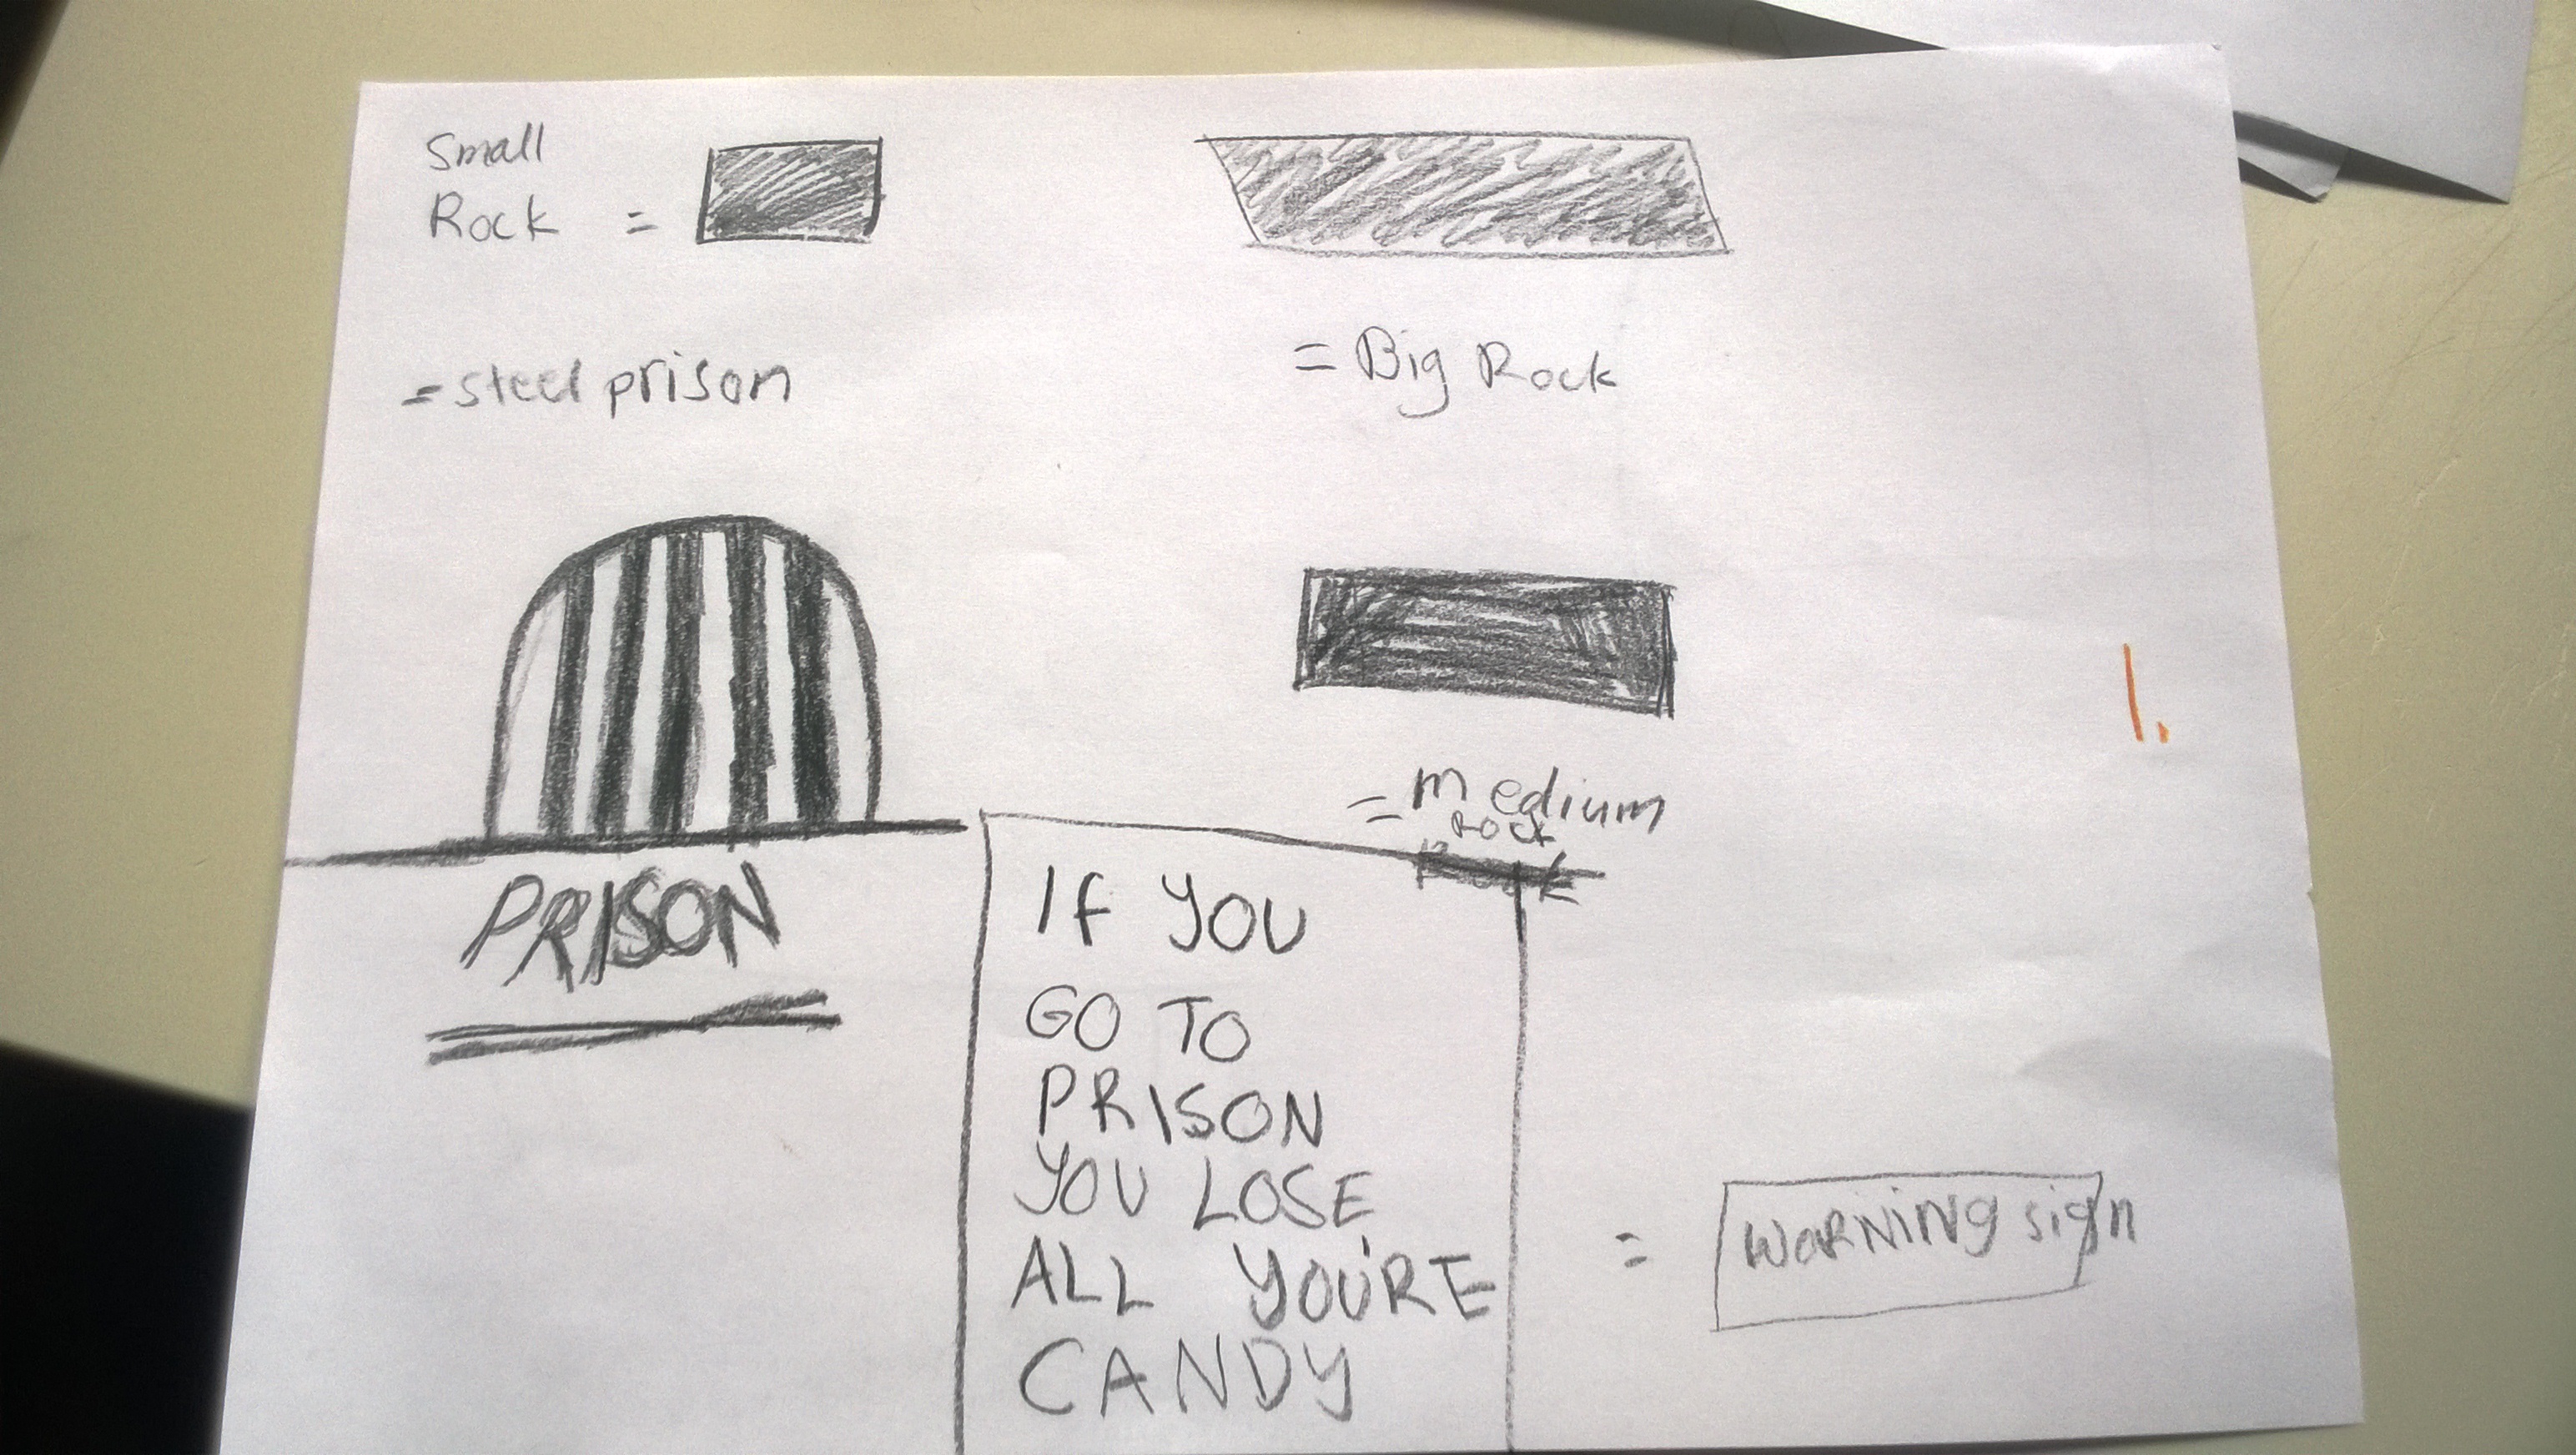 Small
Rock =
= Big Rock
= steel prison
= medium
Rock
PRISON
1.
IF YOU
GO TO
PRISON
YOU LOSE
ALL YOU'RE
CANDY
= WARNiNg sign